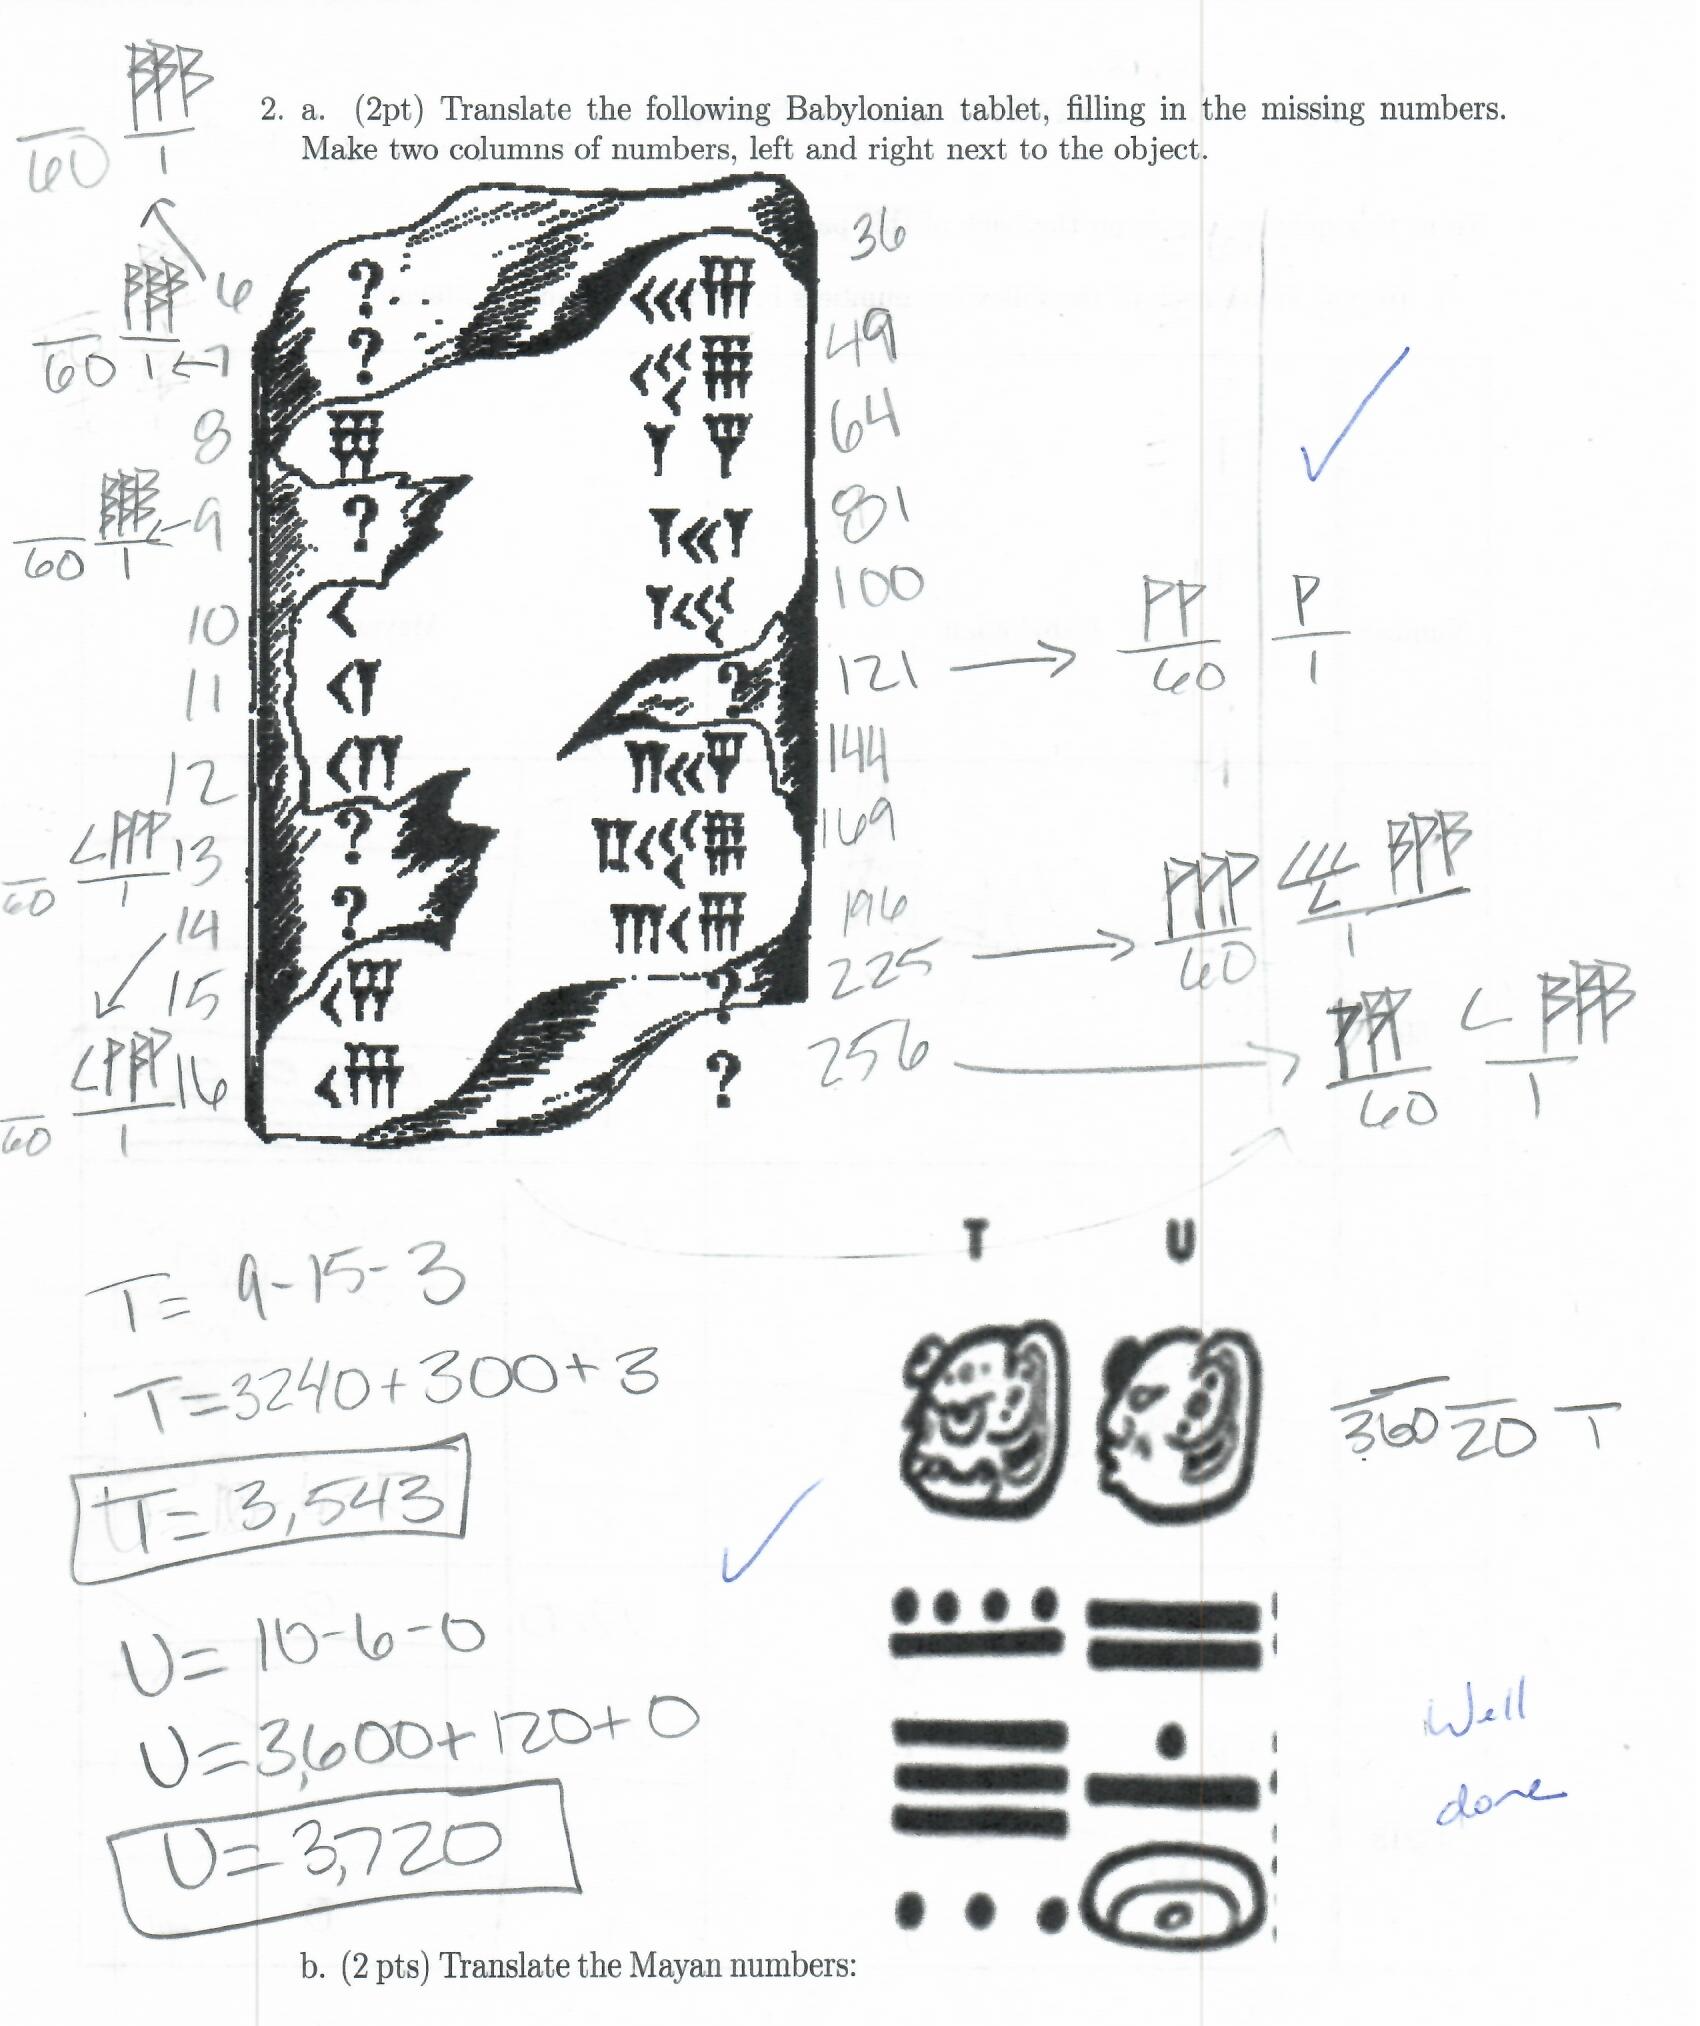 2. a. (2pt) Translate the following Babylonian tablet, filling in the missing numbers.
Make two columns of numbers, left and right next to the object.
60 1
6
60 1 ← 7
8
60 1 ← 9
10
11
12
13
60 1
14
15
16
60 1
?
?
?
?
?
36
49
64
81
100
121 → 60 1
144
169
196
225 → 60 1
256 → 60 1
?
?
?
T U
T = 9-15-3
T = 3240 + 300 + 3
T = 3,543
360 20 1
U = 10-6-0
U = 3,600 + 120 + 0
U = 3,720
Well
done
b. (2 pts) Translate the Mayan numbers: